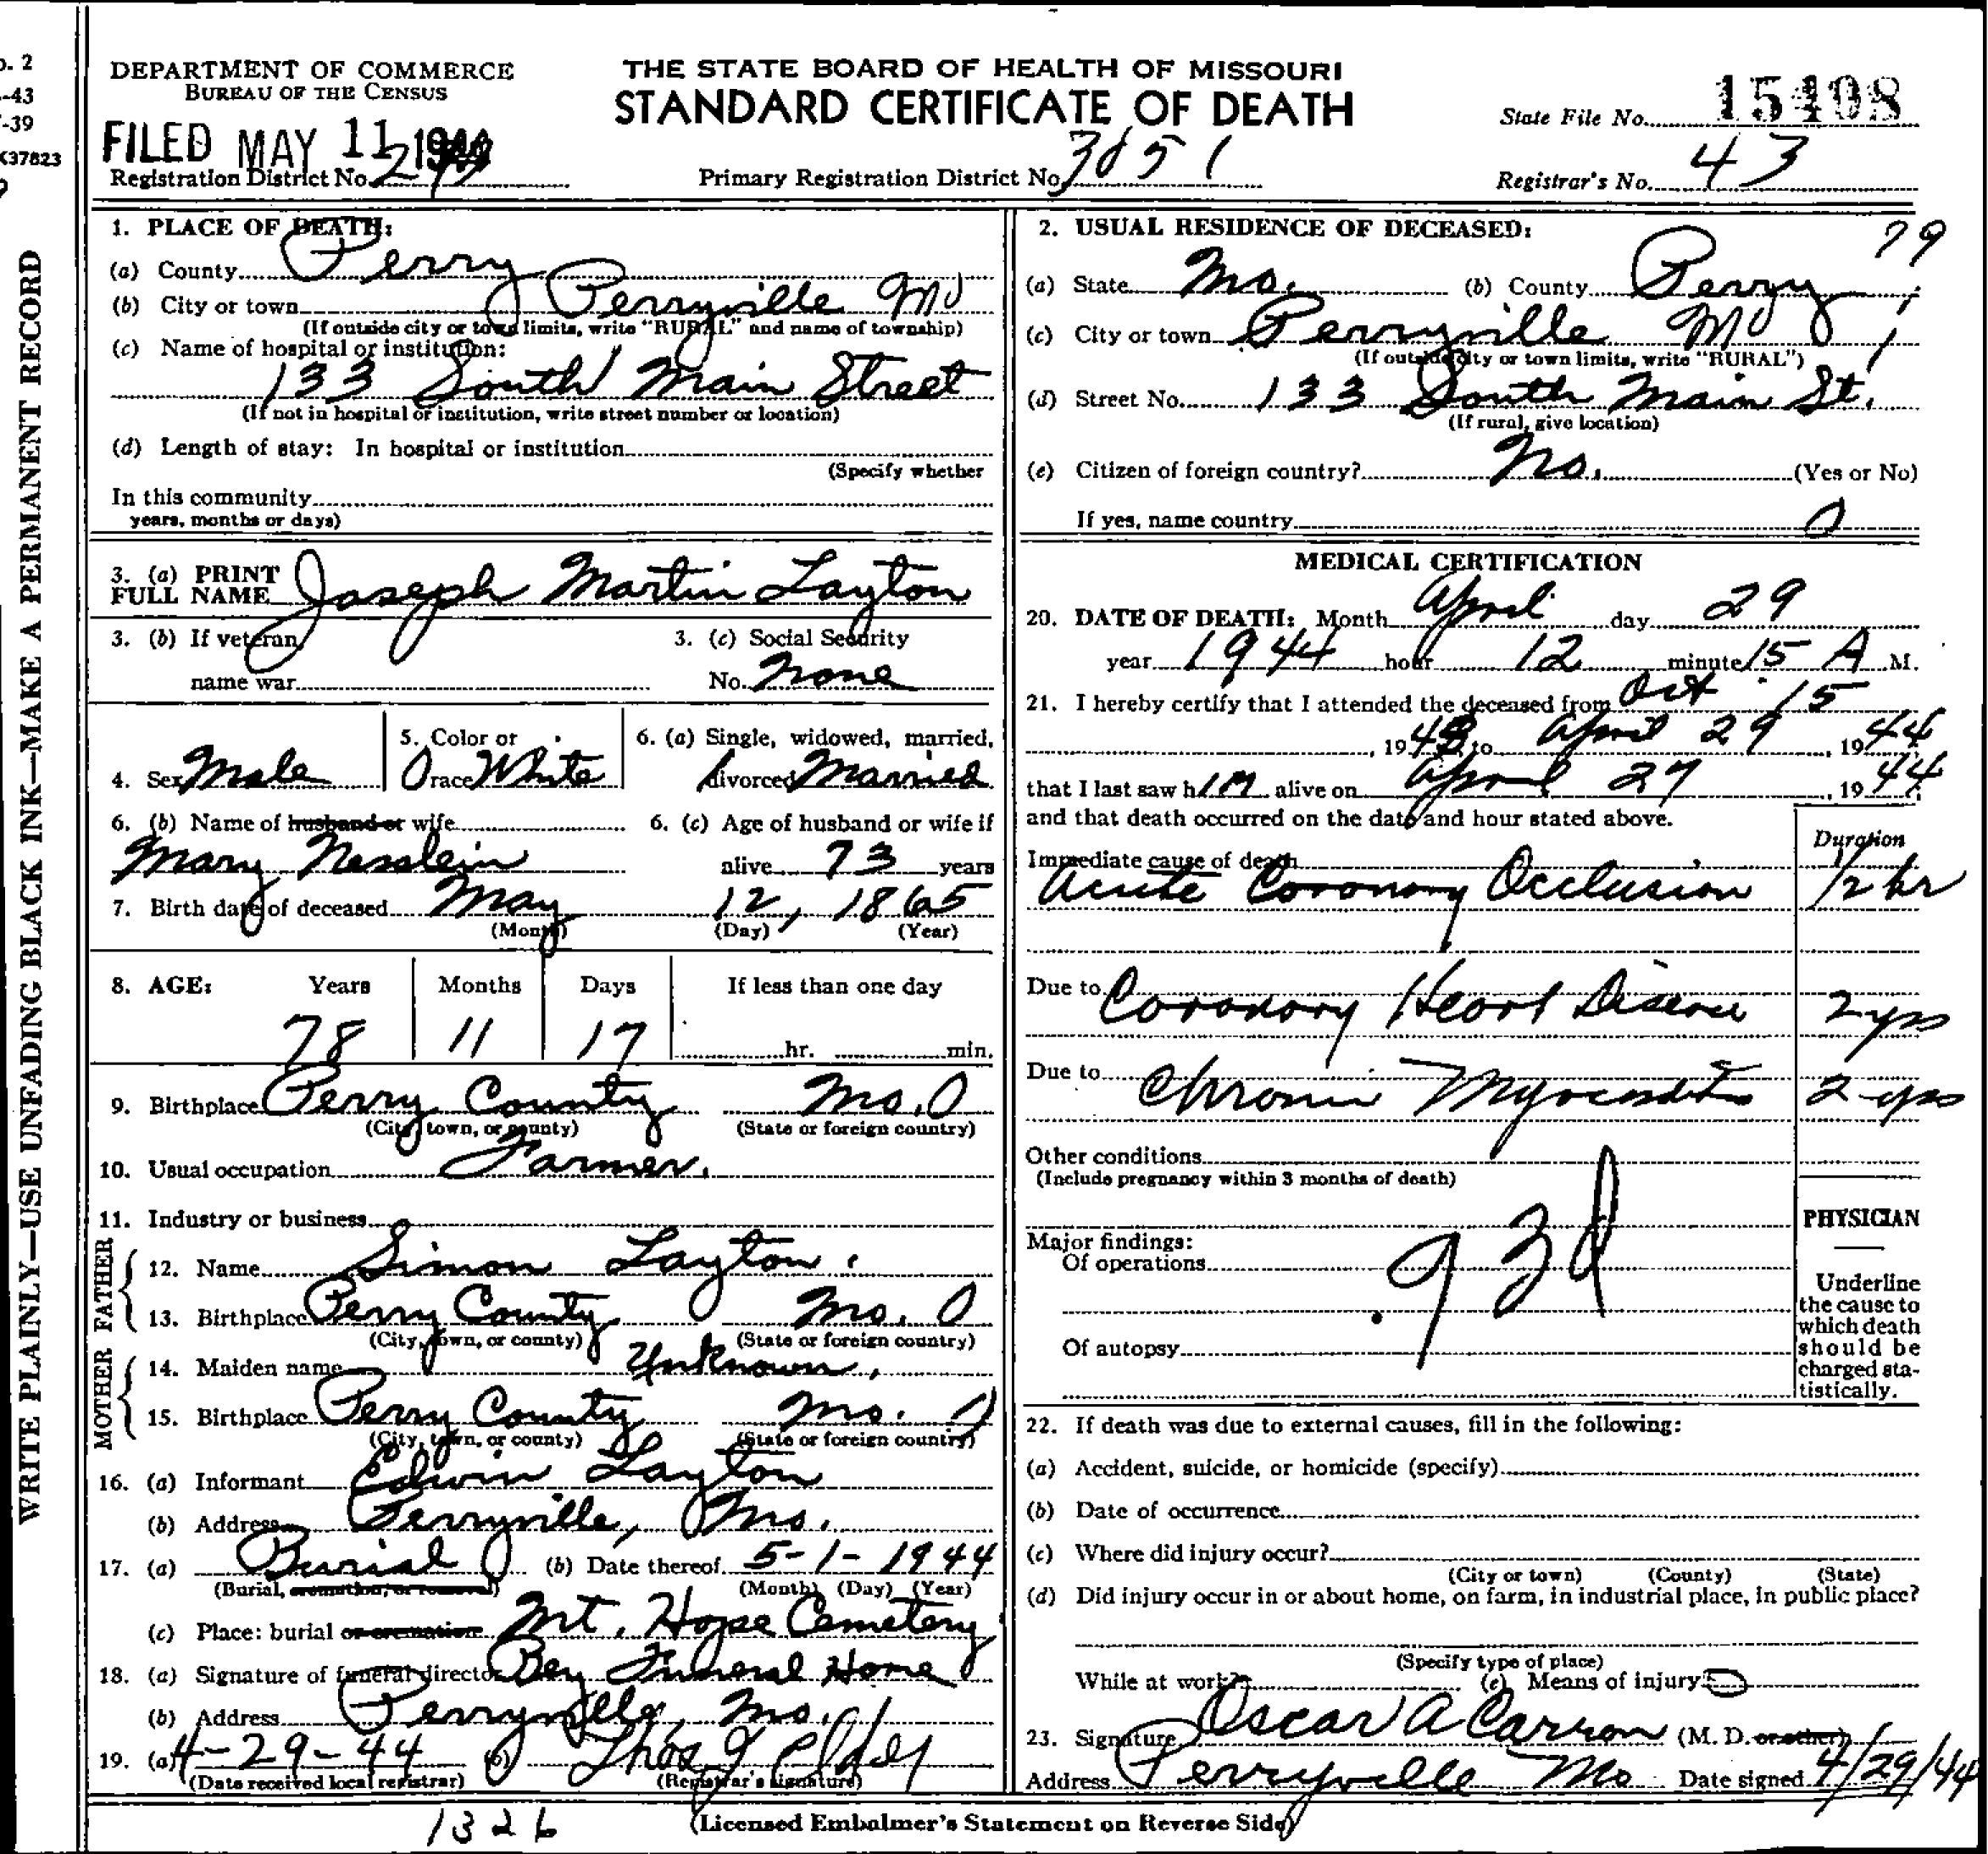 DEPARTMENT OF COMMERCE
BUREAU OF THE CENSUS
THE STATE BOARD OF HEALTH OF MISSOURI
STANDARD CERTIFICATE OF DEATH
State File No. 15408
FILED MAY 11 1944
Registration District No.
Primary Registration District No. 3051
Registrar's No. 43
o. 2
-43
-39
K37823
WRITE PLAINLY—USE UNFADING BLACK INK—MAKE A PERMANENT RECORD
1. PLACE OF DEATH:
(a) County Perry
(b) City or town Perryville Mo
(If outside city or town limits, write "RURAL" and name of township)
(c) Name of hospital or institution:
133 South Main Street
(If not in hospital or institution, write street number or location)
(d) Length of stay: In hospital or institution
(Specify whether
In this community
years, months or days)
3. (a) PRINT
FULL NAME Joseph Martin Layton
3. (b) If veteran,
name war
3. (c) Social Security
No. None
4. Sex Male
5. Color or
race White
6. (a) Single, widowed, married,
divorced Married
6. (b) Name of husband or wife
Mary Nesslein
6. (c) Age of husband or wife if
alive 73 years
7. Birth date of deceased May 12, 1865
(Month) (Day) (Year)
8. AGE: Years Months Days If less than one day
78 11 17 hr. min.
9. Birthplace Perry County Mo. 0
(City, town, or county) (State or foreign country)
10. Usual occupation Farmer.
11. Industry or business
FATHER
12. Name Simon Layton
13. Birthplace Perry County Mo. 0
(City, town, or county) (State or foreign country)
MOTHER
14. Maiden name Unknown
15. Birthplace Perry County Mo.
(City, town, or county) (State or foreign country)
16. (a) Informant Edwin Layton
(b) Address Perryville, Mo.
17. (a) Burial (b) Date thereof 5-1-1944
(Burial, cremation, or removal) (Month) (Day) (Year)
(c) Place: burial or cremation Mt. Hope Cemetery
18. (a) Signature of funeral director Bey Funeral Home
(b) Address Perryville, Mo.
19. (a) 4-29-44 (b) Thos J Elder
(Date received local registrar) (Registrar's signature)
2. USUAL RESIDENCE OF DECEASED: 79
(a) State Mo. (b) County Perry
(c) City or town Perryville Mo
(If outside city or town limits, write "RURAL")
(d) Street No. 133 South Main St.
(If rural, give location)
(e) Citizen of foreign country? No. (Yes or No)
If yes, name country 0
MEDICAL CERTIFICATION
20. DATE OF DEATH: Month April day 29
year 1944 hour 12 minute 15 A M.
21. I hereby certify that I attended the deceased from Oct 15
, 1943, to April 29, 1944
that I last saw him alive on April 27, 1944;
and that death occurred on the date and hour stated above.
Duration
Immediate cause of death
Acute Coronary Occlusion 1/2 hr
Due to Coronary Heart Disease 2 yrs
Due to Chronic Myocarditis 2 yrs
Other conditions
(Include pregnancy within 3 months of death)
Major findings:
Of operations
Of autopsy
PHYSICIAN
Underline
the cause to
which death
should be
charged sta-
tistically.
22. If death was due to external causes, fill in the following:
(a) Accident, suicide, or homicide (specify)
(b) Date of occurrence
(c) Where did injury occur?
(City or town) (County) (State)
(d) Did injury occur in or about home, on farm, in industrial place, in public place?
(Specify type of place)
While at work? (e) Means of injury
23. Signature Oscar A Carron (M. D. or other)
Address Perryville Mo Date signed 4/29/44
1326
(Licensed Embalmer's Statement on Reverse Side)